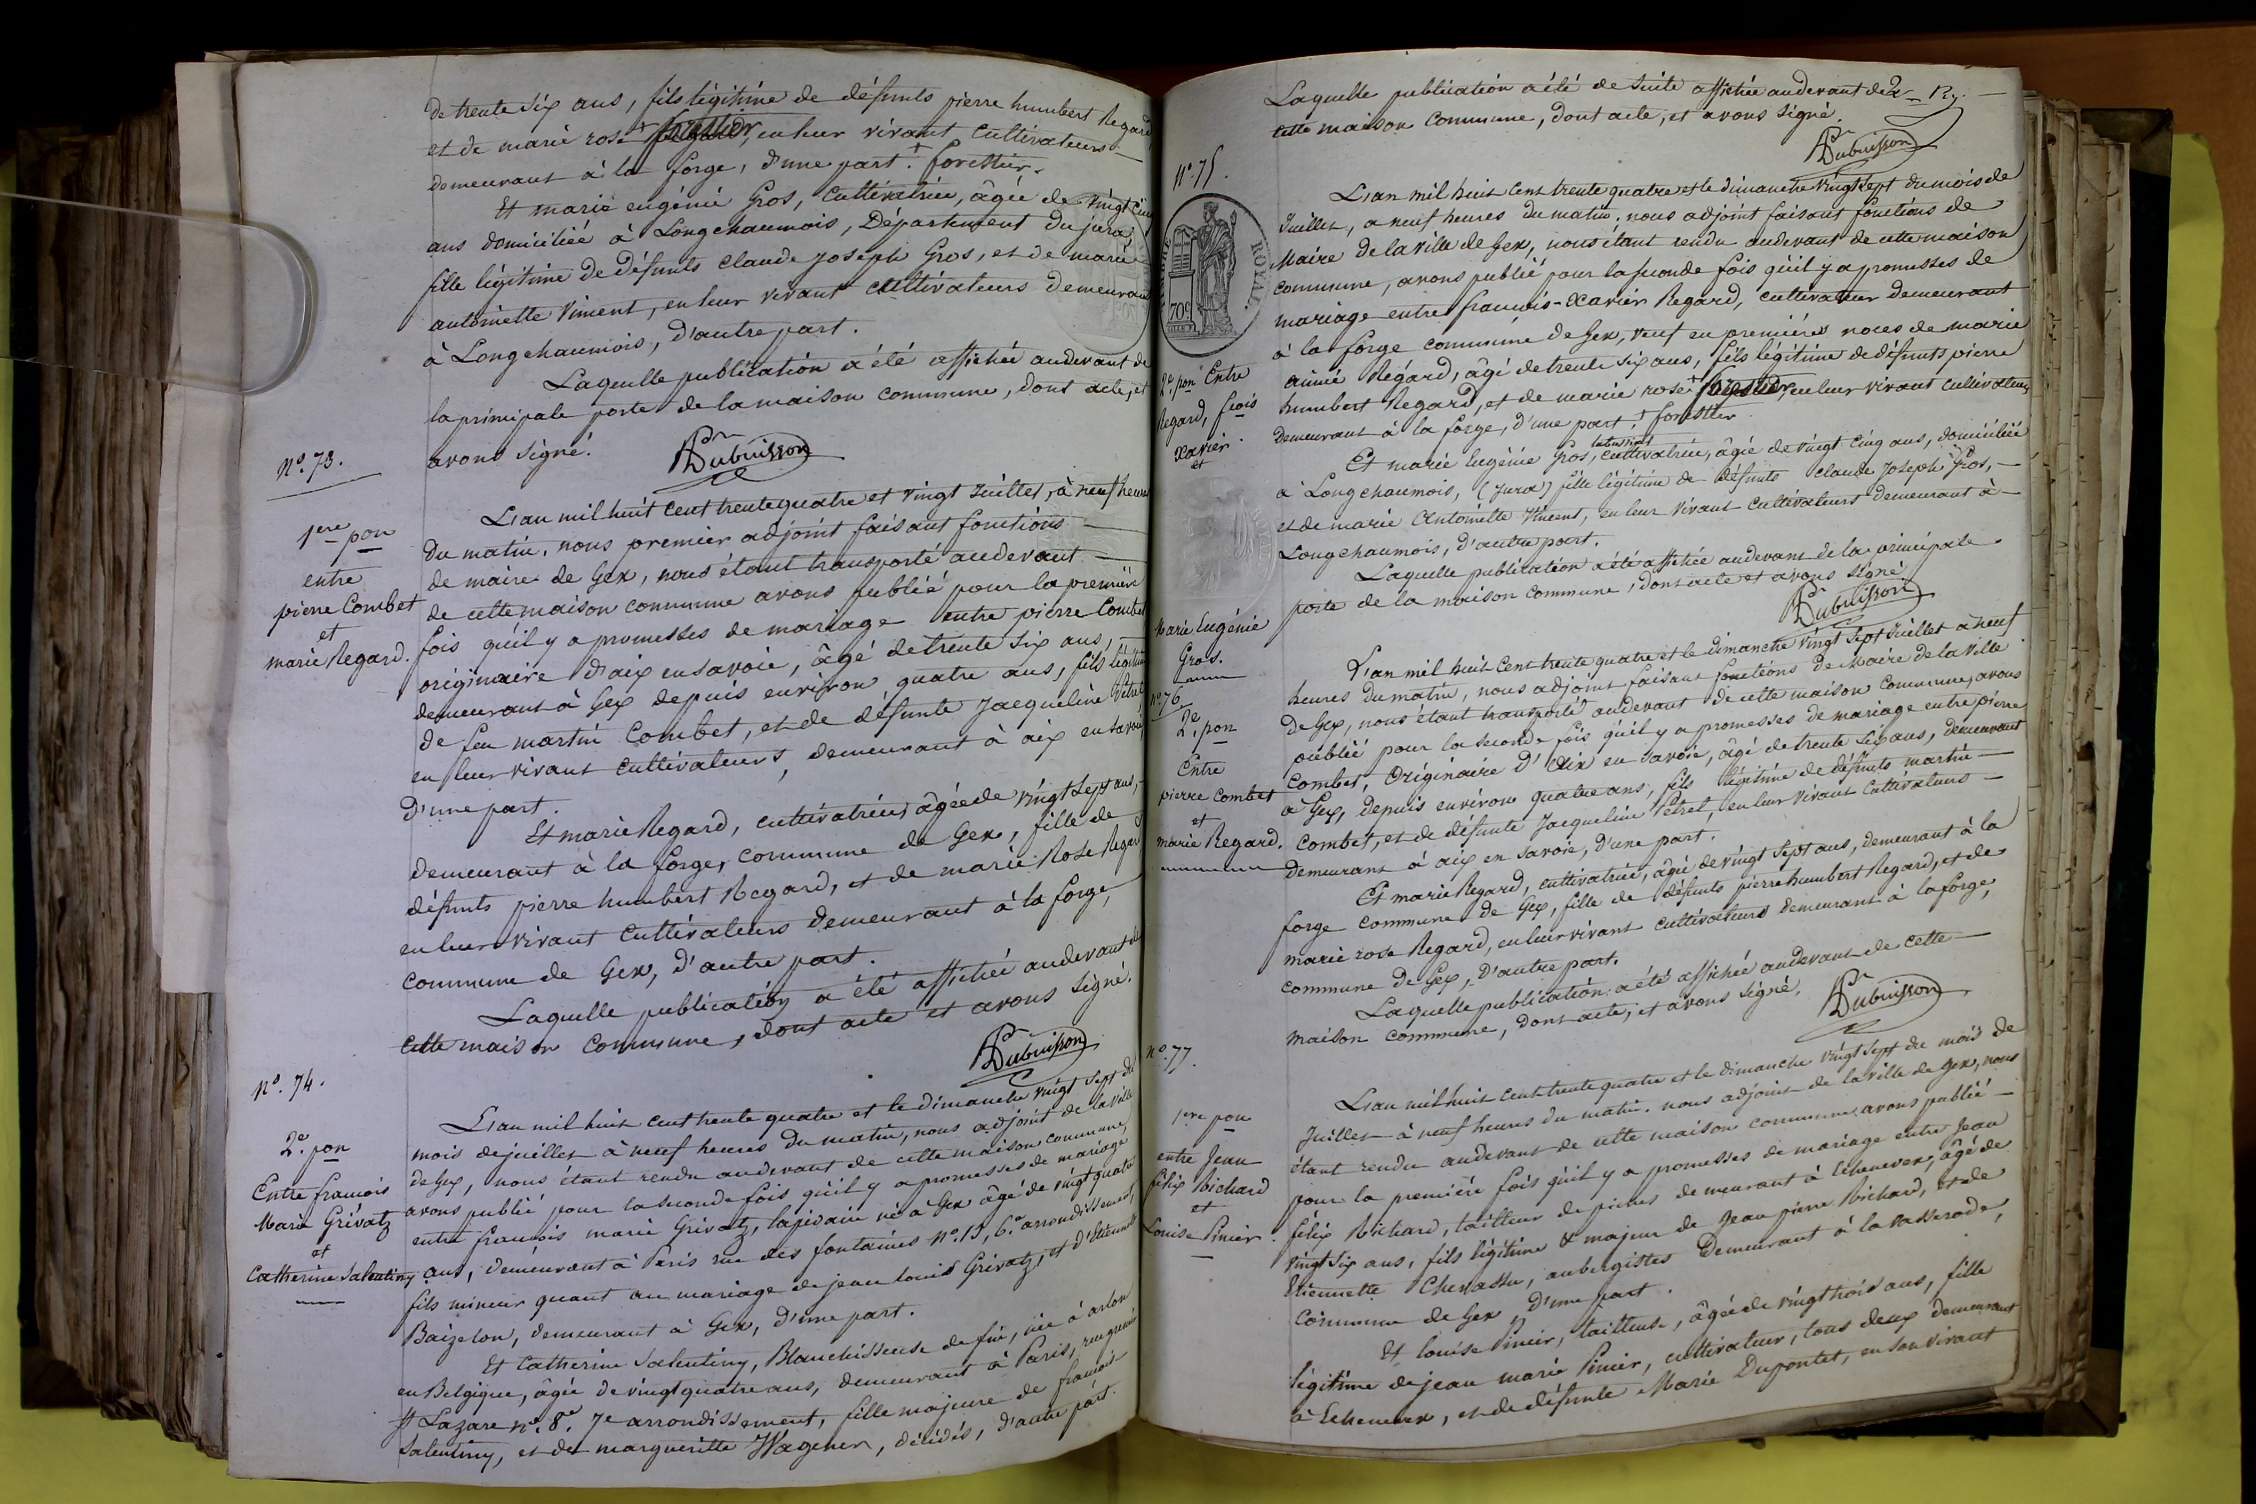 de trente six ans, fils légitime de défunts pierre humbert Regard,
et de marie rose + en leur vivant cultivateurs —
demeurant à la forge, d'une part. + forestier.
Et marie eugénie Gros, cultivatrice, âgée de vingt cinq
ans domiciliée à Longchaumois, Département du jura,
fille légitime de défunts claude joseph Gros, et de marie
antoinette Vincent, en leur vivant cultivateurs demeurant
à Longchaumois, d'autre part.
Laquelle publication a été affichée audevant de
la principale porte de la maison commune, dont acte, et
avons signé. ADubuisson
N°. 73.
1ere pon
entre
pierre Combet
et
marie Regard.
L'an mil huit cent trente quatre et vingt Juillet, à neuf heures
du matin, nous premier adjoint faisant fonctions —
de maire de Gex, nous étant transporté audevant —
de cette maison commune avons publié pour la première
fois qu'il y a promesses de mariage entre pierre Combet
originaire d'aix en savoie, âgé de trente six ans, —
demeurant à Gex depuis environ quatre ans, fils légitime
de feu martin Combet, et de défunte Jacqueline Pétret
en leur vivant cultivateurs, demeurant à aix en savoie,
d'une part.
Et marie Regard, cultivatrice, âgée de vingt sept ans, —
demeurant à la forge, commune de Gex, fille de
défunts pierre humbert Regard, et de marie Rose Regard
en leur vivant cultivateurs demeurant à la forge,
commune de Gex, d'autre part.
Laquelle publication a été affichée audevant de
cette maison commune, dont acte et avons signé.
ADubuisson
N°. 74.
2e. pon
Entre françois
Marie Grivatz
et
Catherine Salentiny
L'an mil huit cent trente quatre et le dimanche vingt sept du
mois de juillet à neuf heures du matin, nous adjoint de la ville
de Gex, nous étant rendu audevant de cette maison commune,
avons publié pour la seconde fois qu'il y a promesses de mariage
entre françois marie Grivatz, lapidaire né à Gex âgé de vingt quatre
ans, demeurant à Paris rue des fontaines N°. 13, 6e. arrondissement,
fils mineur quant au mariage de jean louis Grivatz, et d'Etiennette
Baizelon, demeurant à Gex, d'une part.
Et Catherine Salentiny, Blanchisseuse de fin, née à arlon
en Belgique, âgée de vingt quatre ans, demeurant à Paris,
St Lazare N°. 8. 7e arrondissement, fille majeure de françois
Salentiny, et de margueritte Wagener, décédés, d'autre part.
Laquelle publication a été de suite affichée audevant de
cette maison commune, dont acte, et avons signé.
ADubuisson
N°. 75.
ROYAL
70c
2e pon Entre
Regard, fcois
xavier
et
Marie Eugénie
Gros.
L'an mil huit cent trente quatre et le dimanche vingt sept du mois de
Juillet, a neuf heures du matin, nous adjoint faisant fonctions de
Maire de la ville de Gex, nous étant rendu audevant de cette maison
commune, avons publié pour la seconde fois qu'il y a promesses de
mariage entre françois-Xavier Regard, cultivateur demeurant
à la forge commune de Gex, veuf en premières noces de marie
aimée Regard, âgé de trente six ans, fils légitime de défunts pierre
humbert Regard, et de marie rose + en leur vivant cultivateurs
demeurant à la forge, d'une part, + forestier
Et marie Eugénie Gros, cultivatrice, âgée de vingt cinq ans, domiciliée
à Longchaumois, (Jura) fille légitime de défunts claude Joseph Gros, —
et de marie Antoinette Vincent, en leur vivant cultivateurs demeurant à —
Longchaumois, d'autre part.
Laquelle publication a été affichée audevant de la principale
porte de la maison commune, dont acte et avons signé
ADubuisson
N°. 76
2e. pon
Entre
pierre Combet
et
marie Regard.
L'an mil huit cent trente quatre et le dimanche vingt sept Juillet à neuf
heures du matin, nous adjoint faisant fonctions de Maire de la ville
de Gex, nous étant transporté audevant de cette maison commune, avons
publié pour la seconde fois qu'il y a promesses de mariage entre pierre
Combet, Originaire d'Aix en savoie, âgé de trente six ans, demeurant
a Gex, depuis environ quatre ans, fils légitime de défunts martin —
Combet, et de défunte Jacqueline Pétret, en leur vivant cultivateurs —
demeurant à aix en savoie, d'une part.
Et marie Regard, cultivatrice, âgée de vingt sept ans, demeurant à la
forge commune de Gex, fille de défunts pierre humbert Regard, et de
marie rose Regard, en leur vivant cultivateurs demeurant à la forge,
commune de Gex, d'autre part.
Laquelle publication a été affichée audevant de cette —
maison commune, dont acte, et avons signé. ADubuisson
N°. 77.
1ere pon
entre Jean
félix Richard
et
Louise Pinier.
L'an mil huit cent trente quatre et le dimanche vingt sept du mois de
Juillet à neuf heures du matin. nous adjoint de la ville de Gex, nous
étant rendu audevant de cette maison commune, avons publié —
pour la première fois qu'il y a promesses de mariage entre Jean
félix Richard, tailleur de pierres demeurant à Echenevex, âgé de
vingt six ans, fils légitime & majeur de Jean pierre Richard, et de
Etiennette Chevassu, aubergistes demeurant à la vasserode,
commune de Gex, d'une part.
Et louise Pinier, tailleuse, âgée de vingt trois ans, fille
légitime de jean marie Pinier, cultivateur, tous deux demeurant
à Echenevex, et de défunte Marie Dupontet, en son vivant